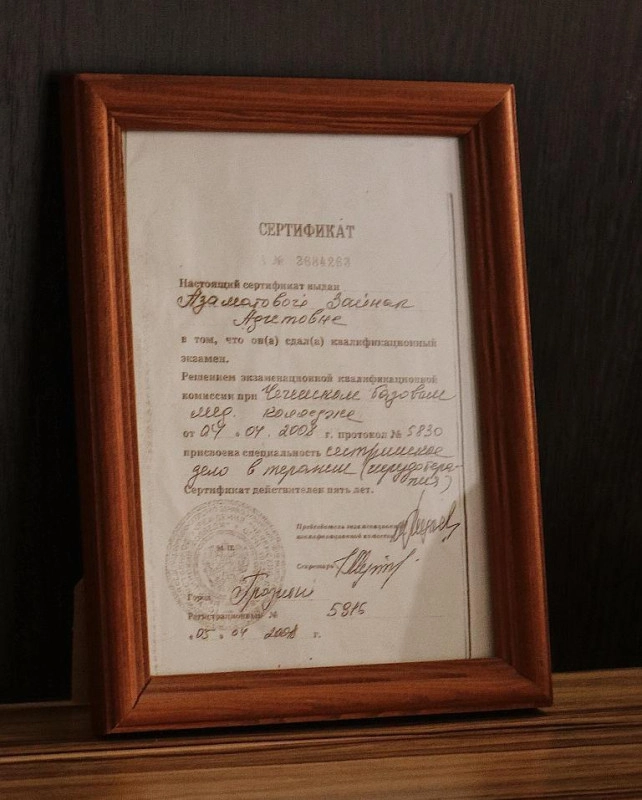 СЕРТИФИКАТ
№ 3684263
Настоящий сертификат выдан
Азаматовой Зайнап
в том, что он(а) сдал(а) квалификационный
экзамен.
Решением экзаменационной квалификационной
комиссии при Чеченском базовом
мед. колледже
от 04 . 04. 2008 г. протокол № 5830
присвоена специальность сестринское
дело в терапии (гирудотера-
пия)
Сертификат действителен пять лет.
Председатель экзаменационной
квалификационной комиссии
Секретарь
М.П.
Город Грозный
Регистрационный № 5916
"05" 04 2008 г.